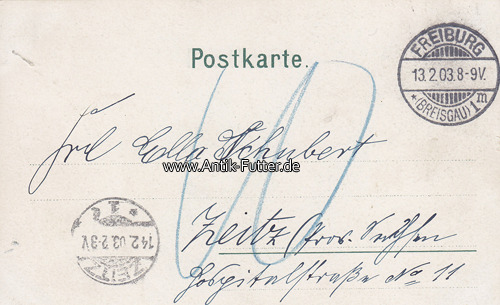 Postkarte.
FREIBURG
13.2.03.8-9V.
*(BREISGAU)1m
10
Frl Ella Schubert
www.Antik-Futter.de
Zeitz, Prov. Sachsen
Hospitalstraße No 11
ZEITZ
14.2.03.2-3V.